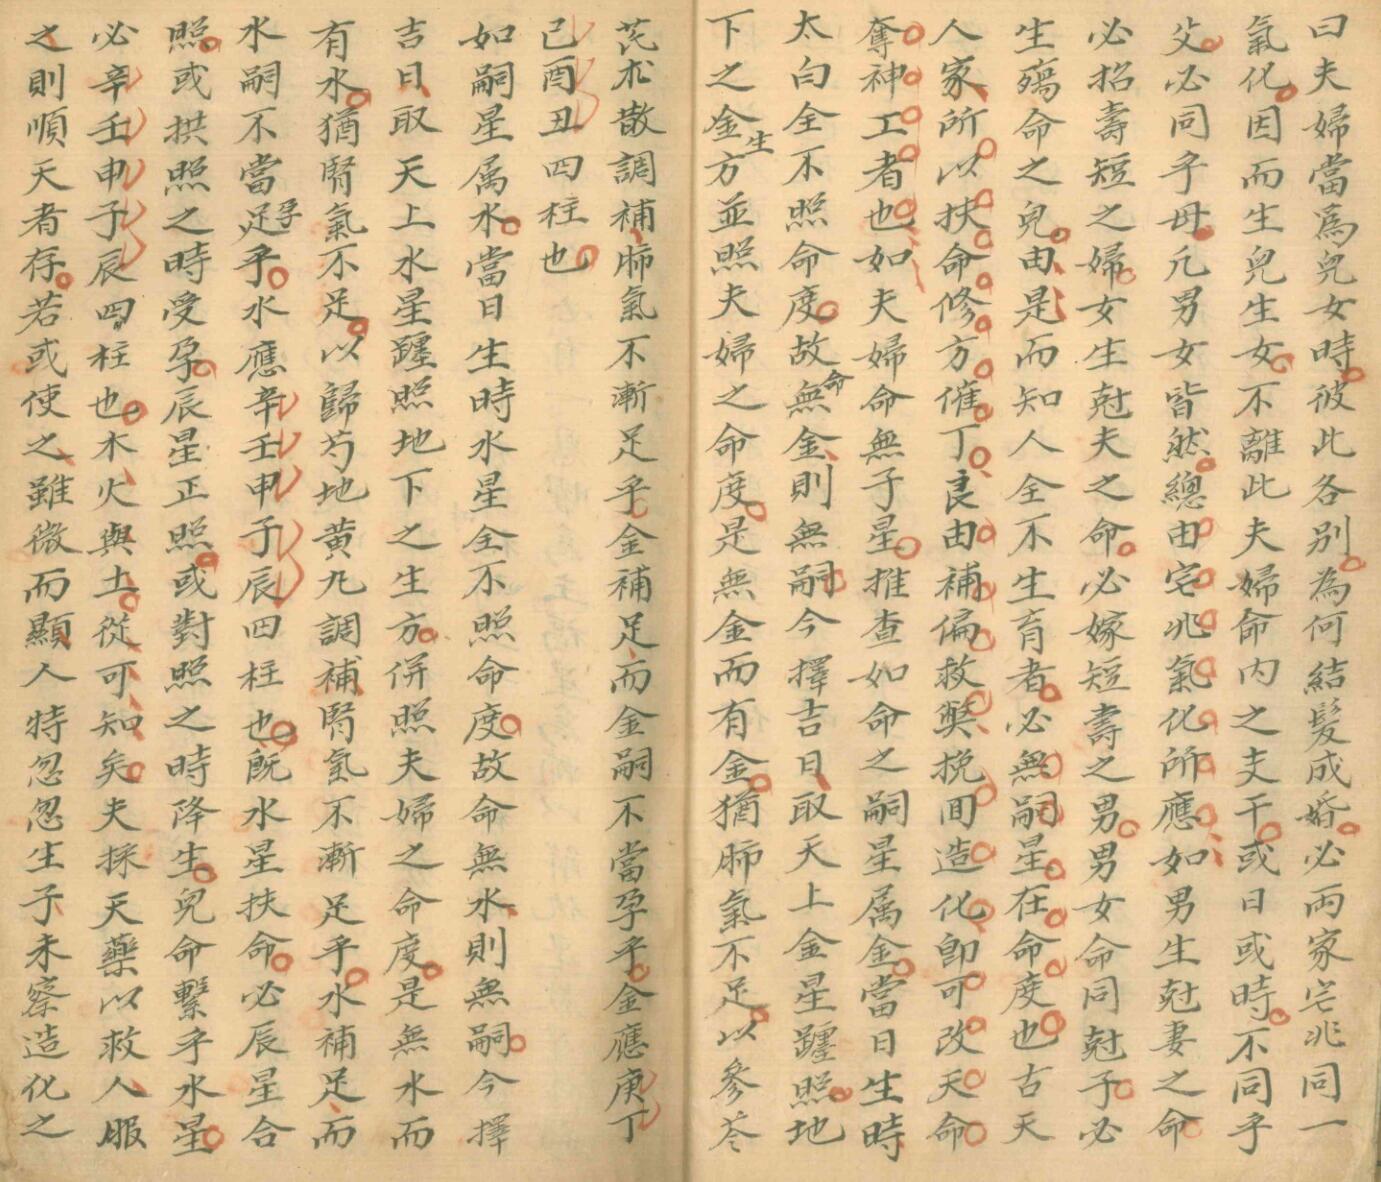 曰夫婦當為兒女時彼此各別為何結髮成婚必兩家宅兆同一
氣化因而生兒生女不離此夫婦命內之支干或日或時不同乎
父必同乎母凡男女皆然總由宅兆氣化所應如男生尅妻之命
必招壽短之婦女生尅夫之命必嫁短壽之男男女命同尅子必
生殤命之兒由是而知人全不生育者必無嗣星在命度也古天
人家所以扶命修方催丁良由補偏救獘挽回造化卽可改天命
奪神工者也如夫婦命無子星推查如命之嗣星属金當日生時
太白全不照命度故命無金則無嗣今擇吉日取天上金星躔照地
下之金生方並照夫婦之命度是無金而有金猶肺氣不足以參苓
芪朮散調補肺氣不漸足乎金補足而金嗣不當孕乎金應庚丁
己酉丑四柱也
如嗣星属水當日生時水星全不照命度故命無水則無嗣今擇
吉日取天上水星躔照地下之生方併照夫婦之命度是無水而
有水猶腎氣不足以歸芍地黄丸調補腎氣不漸足乎水補足而
水嗣不當足孕乎水應辛壬申子辰四柱也既水星扶命必辰星合
照或拱照之時受孕辰星正照或對照之時降生兒命繫乎水星
必辛壬申子辰四柱也木火與土從可知矣夫採天藥以救人服
之則順天者存若或使之雖微而顯人特忽忽生子未察造化之